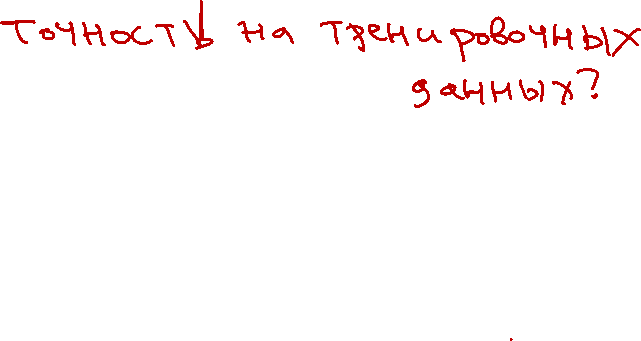 точность на тренировочных
данных?